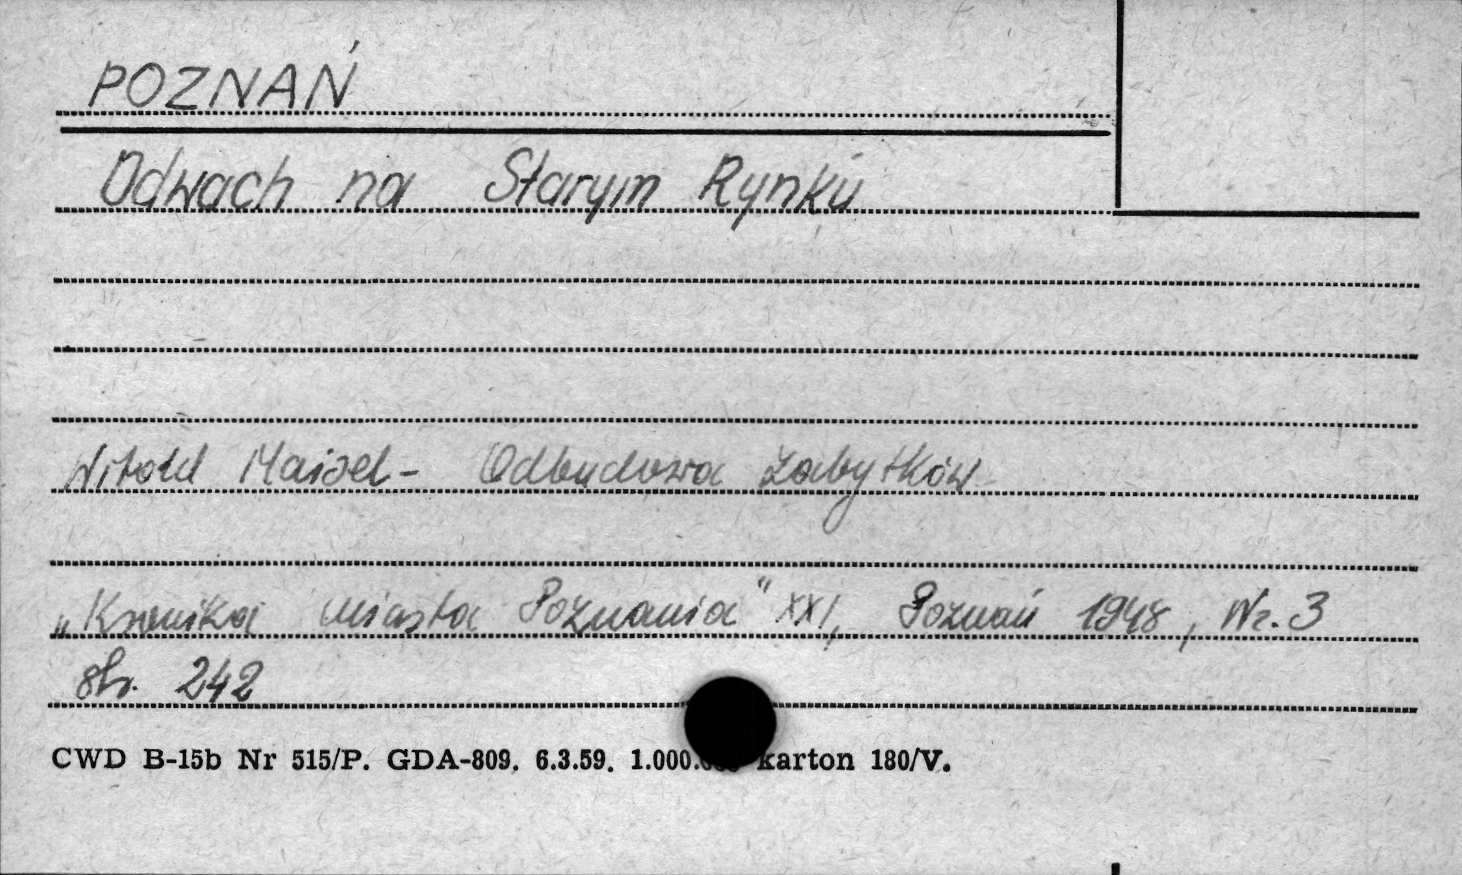 POZNAŃ
Odwach na Starym Rynku
Witold Maisel - Odbudowa zabytków
„Kronika miasta Poznania" XXI, Poznań 1948, Nr. 3
str. 242
CWD B-15b Nr 515/P. GDA-809. 6.3.59. karton 180/V.